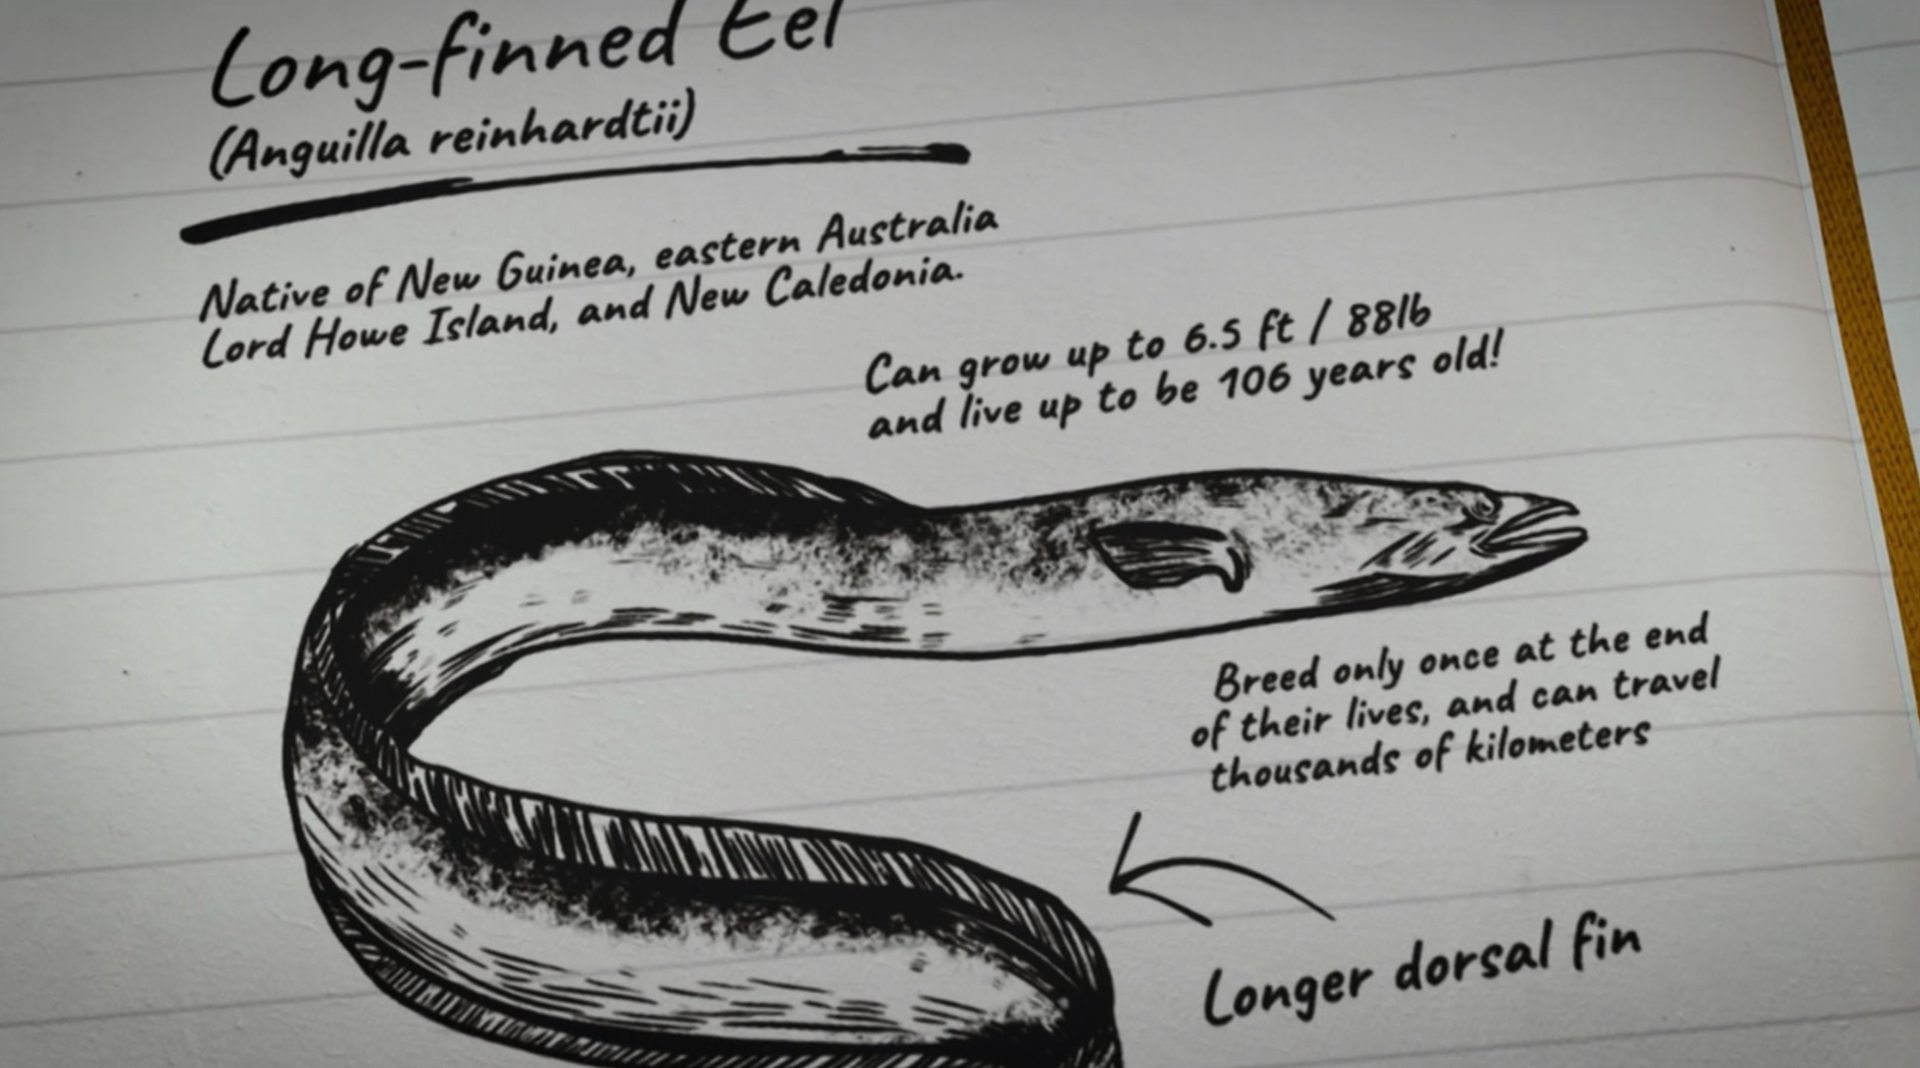 Long-finned Eel
(Anguilla reinhardtii)
Native of New Guinea, eastern Australia
Lord Howe Island, and New Caledonia.
Can grow up to 6.5 ft / 88lb
and live up to be 106 years old!
Breed only once at the end
of their lives, and can travel
thousands of kilometers
Longer dorsal fin